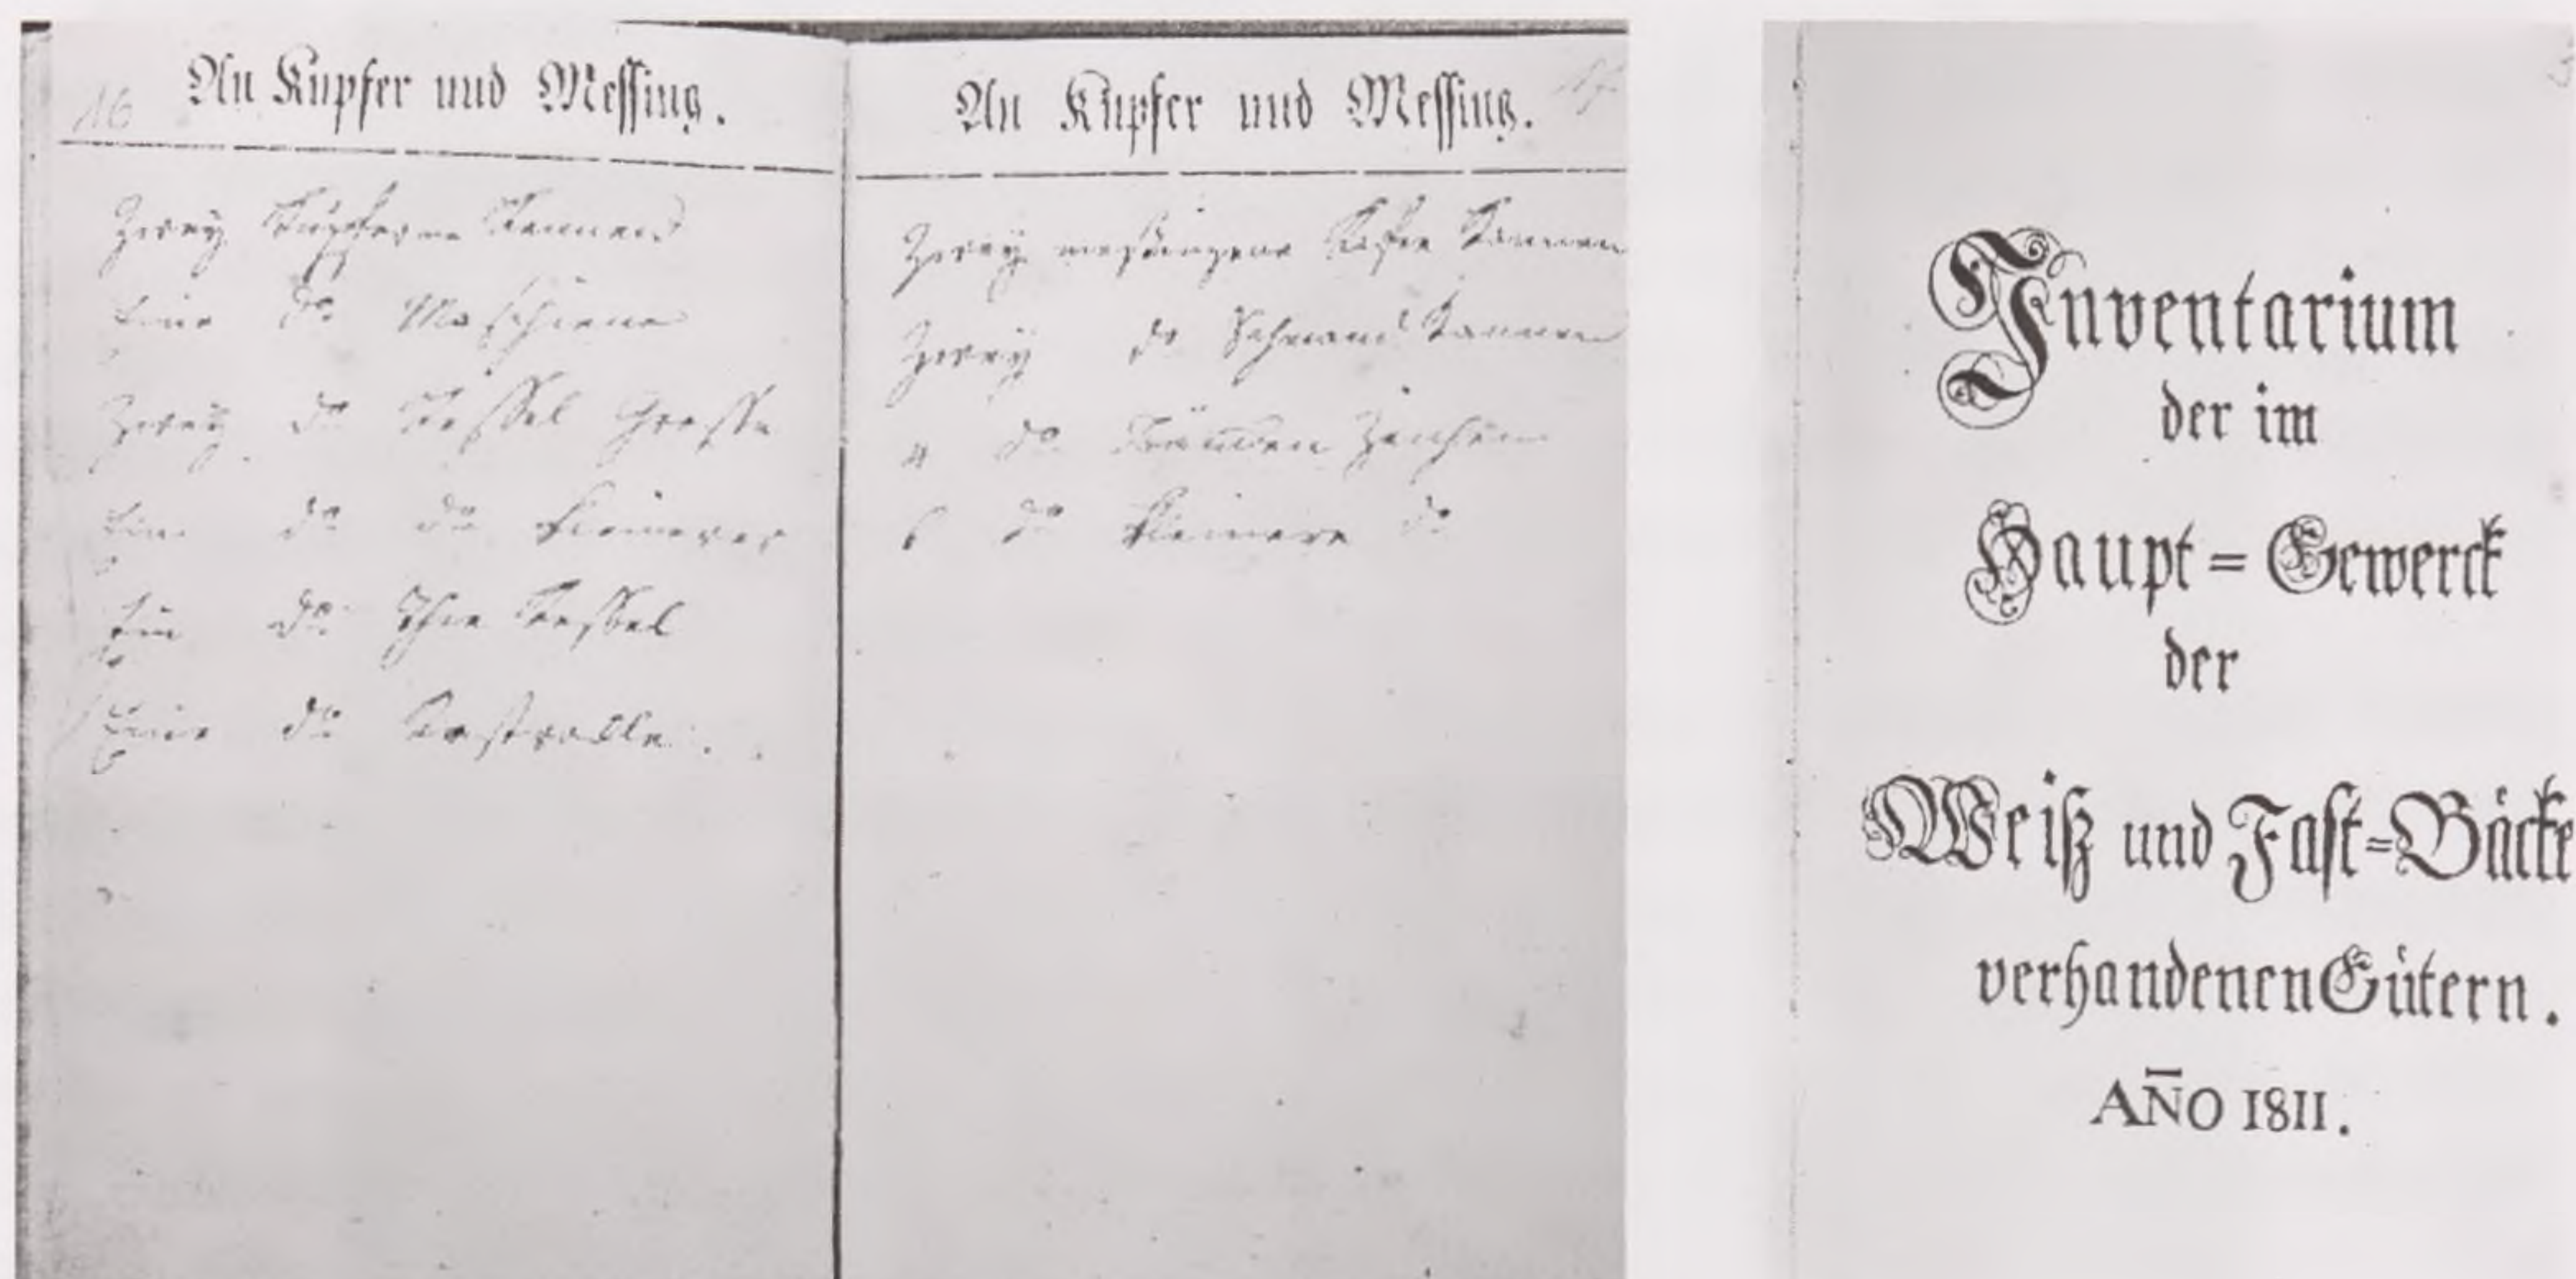 16
An Kupfer und Messing.
Zwey Kupferne Kannen
Eine do Maschiene
Zwey do Kessel Grosse
Ein do do Kleinerer
Ein do Thee Kessel
Eine do Kastrolle.
17
An Kupfer und Messing.
Zwey messingene Kaffee Kannen
Zwey do Schmand Kannen
4 do
6 do Kleinere do
Inventarium
der im
Haupt=Gewerck
der
Weiß und Fast=Bäcke
verhandenen Gütern.
AÑO 1811.